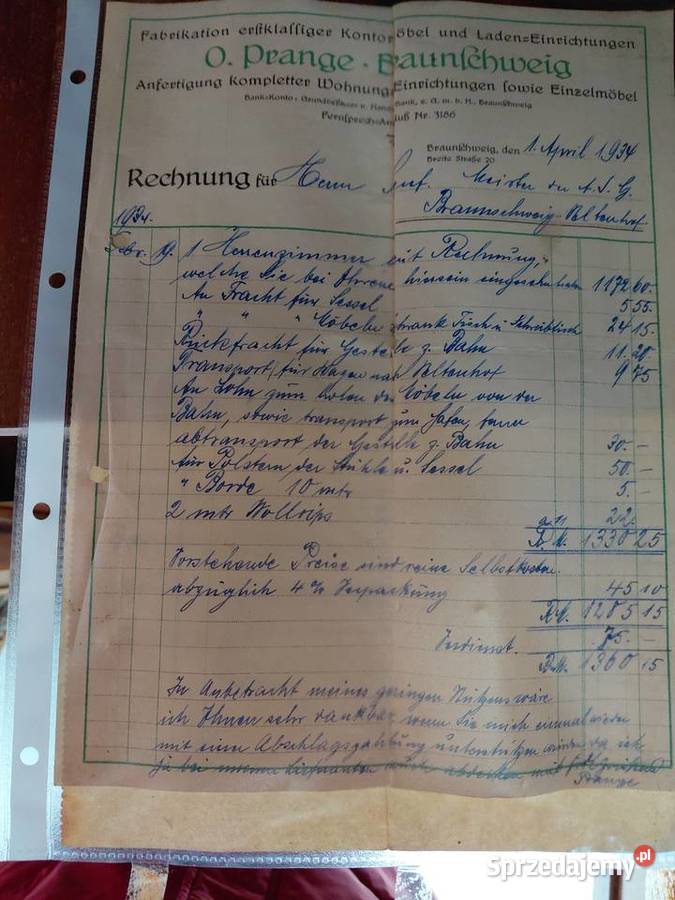 Fabrikation erstklassiger Kontormöbel und Laden=Einrichtungen
O. Prange . Braunschweig
Anfertigung kompletter Wohnungs Einrichtungen sowie Einzelmöbel
Bank=Konto: Bank, e. G. m. b. H., Braunschweig
Fernsprech=Anschluß Nr. 3186
Braunschweig, den 1. April 1934
Breite Straße 20
Rechnung für Herrn Meister der
Braunschweig
1934.
Febr. 9. 1 Herrenzimmer laut Rechnung,
welche Sie bei hierein eingesehen haben 1172 60.-
An Fracht für Sessel 5 55.
" " " Möbeln Schrank Tisch u. Schreibtisch 24 15.-
Rückfracht für Gestelle z. Bahn 11.20-
Transport für nach 9 75
An Lohn zum holen der Möbeln von der
Bahn, sowie transport zum
abtransport der Gestelle z. Bahn 30.-
für Polstern der Stühle u. Sessel 50.-
" Borde 10 mtr 5.-
2 mtr Wollrips a. 11 22.-
R.M. 1330 25
Vorstehende Preise sind reine Selbstkosten.
abzüglich 4 % Verpackung 45 10
R.M. 1285 15
Verdienst. 75.-
R.M. 1360 15
In Anbetracht meines geringen Nutzens wäre
ich Ihnen sehr dankbar wenn Sie mich einmal wieder
mit einer Abschlagszahlung unterstützen würden da ich
ja bei
Prange
Sprzedajemy.pl